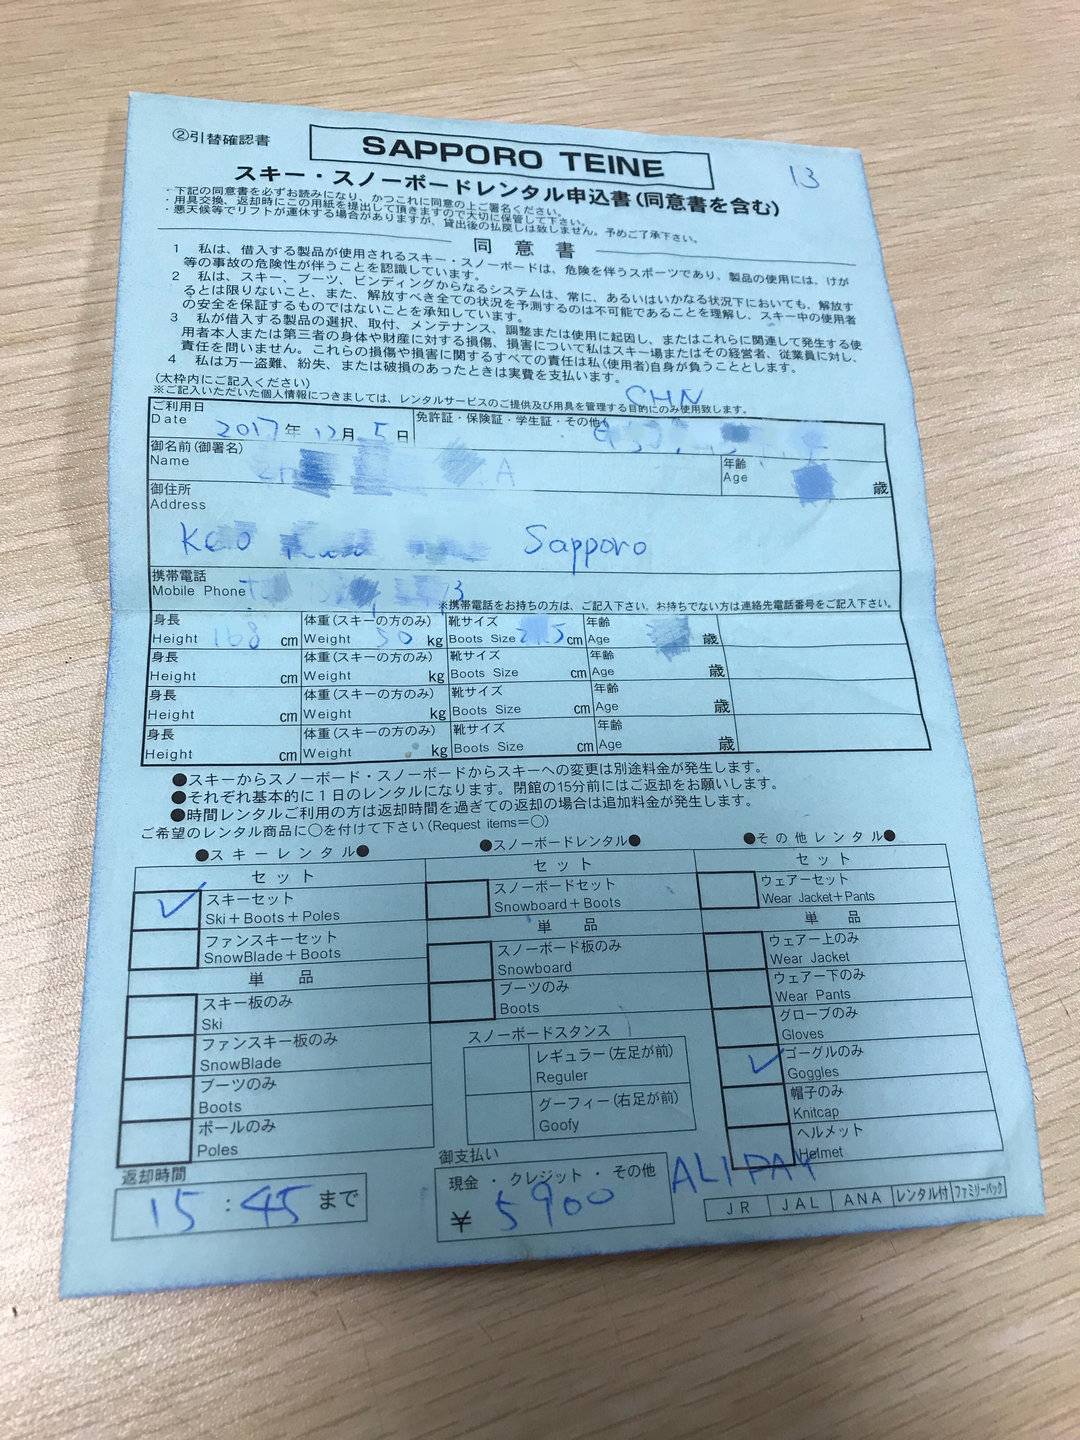 ②引替確認書
SAPPORO TEINE
13
スキー・スノーボードレンタル申込書(同意書を含む)
・下記の同意書を必ずお読みになり、かつこれに同意の上ご署名ください。
・用具交換、返却時にこの用紙を提出して頂きますので大切に保管して下さい。
・悪天候等でリフトが運休する場合がありますが、貸出後の払戻しは致しません。予めご了承下さい。
同意書
1 私は、借入する製品が使用されるスキー・スノーボードは、危険を伴うスポーツであり、製品の使用には、けが
等の事故の危険性が伴うことを認識しています。
2 私は、スキー、ブーツ、ビンディングからなるシステムは、常に、あるいはいかなる状況下においても、解放す
るとは限りないこと、また、解放すべき全ての状況を予測するのは不可能であることを理解し、スキー中の使用者
の安全を保証するものではないことを承知しています。
3 私が借入する製品の選択、取付、メンテナンス、調整または使用に起因し、またはこれらに関連して発生する使
用者本人または第三者の身体や財産に対する損傷、損害について私はスキー場またはその経営者、従業員に対し、
責任を問いません。これらの損傷や損害に関するすべての責任は私(使用者)自身が負うこととします。
4 私は万一盗難、紛失、または破損のあったときは実費を支払います。
(太枠内にご記入ください)
CHN
※ご記入いただいた個人情報につきましては、レンタルサービスのご提供及び用具を管理する目的にのみ使用致します。
ご利用日 Date 2017年12月5日 免許証・保険証・学生証・その他
御名前(御署名)
Name A
年齢 Age 歳
御住所
Address
Sapporo
携帯電話
Mobile Phone 13
※携帯電話をお持ちの方は、ご記入下さい。お持ちでない方は連絡先電話番号をご記入下さい。
身長 体重(スキーの方のみ) 靴サイズ 年齢
Height 168 cm Weight 50 kg Boots Size 5 cm Age 歳
身長 体重(スキーの方のみ) 靴サイズ 年齢
Height cm Weight kg Boots Size cm Age 歳
身長 体重(スキーの方のみ) 靴サイズ 年齢
Height cm Weight kg Boots Size cm Age 歳
身長 体重(スキーの方のみ) 靴サイズ 年齢
Height cm Weight kg Boots Size cm Age 歳
●スキーからスノーボード・スノーボードからスキーへの変更は別途料金が発生します。
●それぞれ基本的に1日のレンタルになります。閉館の15分前にはご返却をお願いします。
●時間レンタルご利用の方は返却時間を過ぎての返却の場合は追加料金が発生します。
ご希望のレンタル商品に○を付けて下さい(Request items=○)
●スキーレンタル●
セット
✓ スキーセット
Ski+Boots+Poles
ファンスキーセット
SnowBlade+Boots
単品
スキー板のみ
Ski
ファンスキー板のみ
SnowBlade
ブーツのみ
Boots
ポールのみ
Poles
●スノーボードレンタル●
セット
スノーボードセット
Snowboard+Boots
単品
スノーボード板のみ
Snowboard
ブーツのみ
Boots
スノーボードスタンス
レギュラー(左足が前)
Reguler
グーフィー(右足が前)
Goofy
●その他レンタル●
セット
ウェアーセット
Wear Jacket+Pants
単品
ウェアー上のみ
Wear Jacket
ウェアー下のみ
Wear Pants
グローブのみ
Gloves
✓ ゴーグルのみ
Goggles
帽子のみ
Knitcap
ヘルメット
Helmet
返却時間
15:45まで
御支払い
現金・クレジット・その他
ALIPAY
¥ 5900
JR JAL ANA レンタル付 ファミリーパック